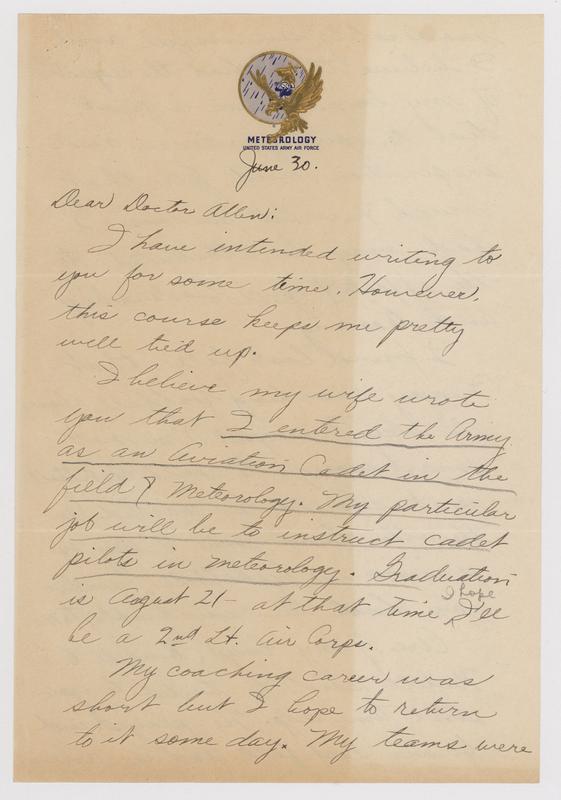 METEOROLOGY
UNITED STATES ARMY AIR FORCE
June 30.
Dear Doctor Allen:
I have intended writing to
you for some time. However,
this course keeps me pretty
well tied up.
I believe my wife wrote
you that I entered the Army
as an Aviation Cadet in the
field of Meteorology. My particular
job will be to instruct cadet
pilots in meteorology. Graduation
I hope
is August 21 - at that time I'll
be a 2nd Lt. Air Corps.
My coaching career was
short but I hope to return
to it some day. My teams were